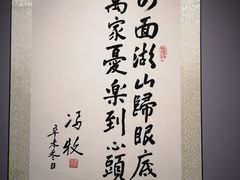 面湖山歸眼底
萬家憂楽到心頭
辛未冬日
冯牧